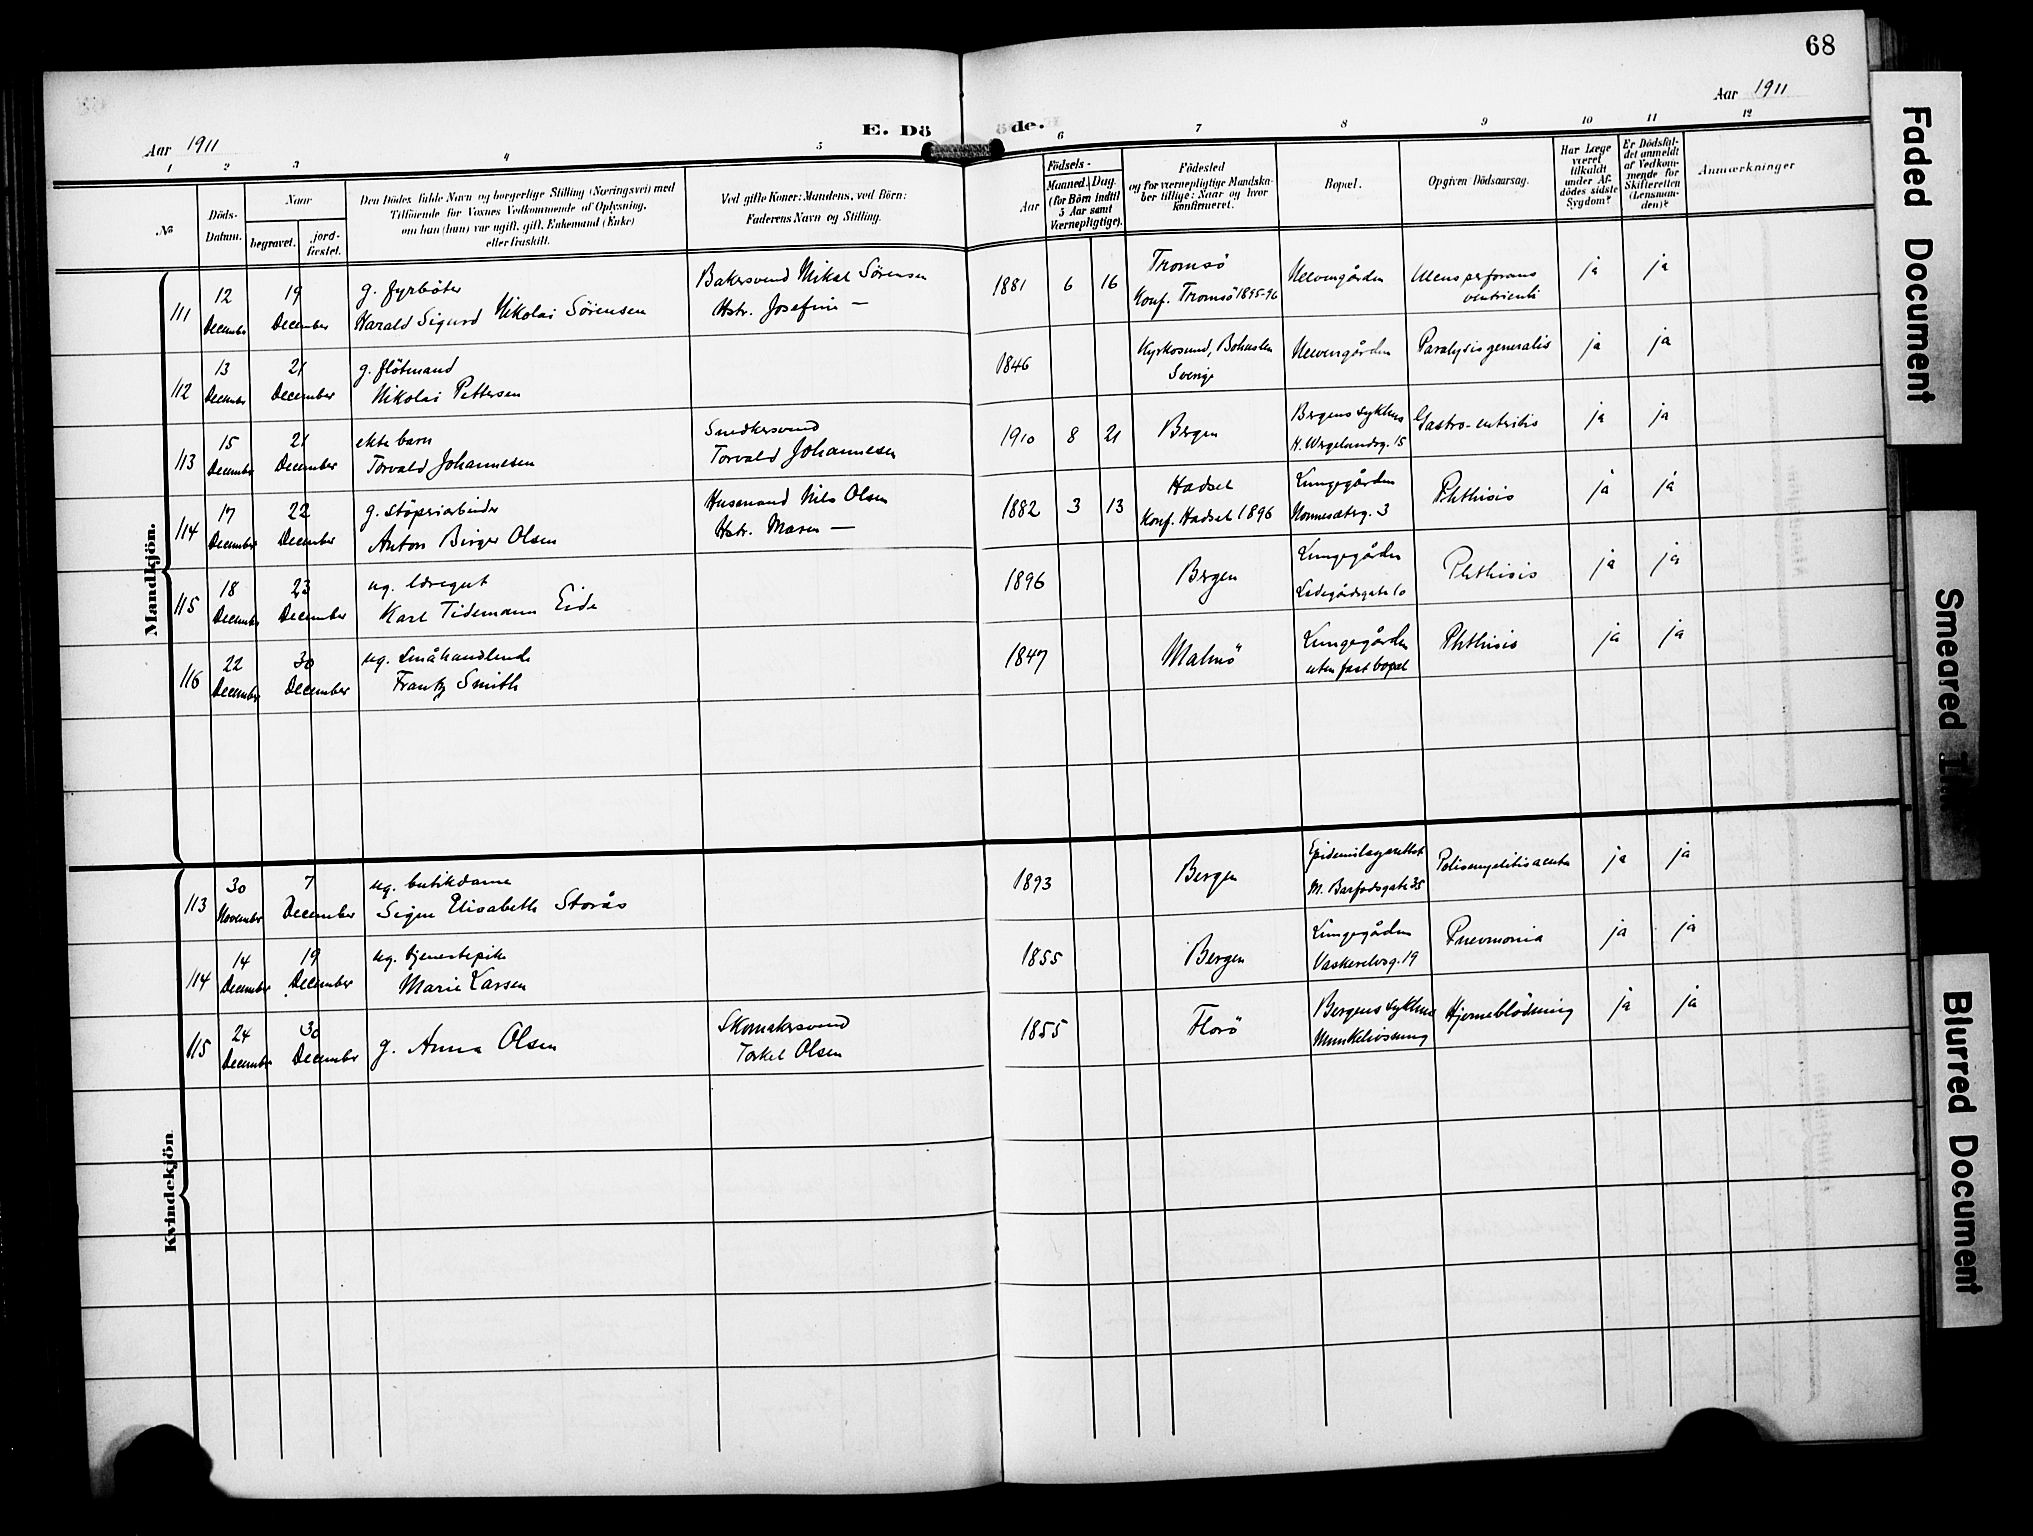 68
Aar 1911
Aar 1911
E. Dö
de.
1 2 3 4 5
6 7 8 9 10 11 12
No
Döds-Datum.
Naar
begravet.
jord-fæstet.
Den Dödes fulde Navn og borgerlige Stilling (Næringsvei) med
Tilföiende for Voxnes Vedkommende af Oplysning,
om han (hun) var ugift, gift, Enkemand (Enke)
eller fraskilt.
Ved gifte Koner: Mandens, ved Börn:
Faderens Navn og Stilling.
Aar
Födsels-
Maaned. Dag.
(for Börn indtil
5 Aar samt
Værnepligtige).
Födested
og for værnepligtige Mandska-
ber tillige: Naar og hvor
konfirmeret.
Bopæl.
Opgiven Dödsaarsag.
Har Læge
været
tilkaldt
under Af-
dödes sidste
Sygdom?
Er Dödsfal-
det anmeldt
af Vedkom-
mende for
Skifteretten
(Lensman-
den)?
Anmærkninger
Mandkjön.
111 12 December 19 December g. fyrböter
Harald Sigurd Nikolai Sörensen
Bakersvend Mikal Sörensen
Hstr. Josefine —
1881 6 16 Tromsö
Konf. Tromsö 1895-96
Ulcus perforans
ventriculi
ja ja
112 13 December 21 December g. flötmand
Nikolai Pettersen
1846 Kyrkosund, Bohuslen
Sverige
Paralysis generalis ja ja
113 15 December 21 December ekte barn
Torvald Johannesen
Snedkersvend
Torvald Johannesen
1910 8 21 Bergen
Bergens sykehus
H. Wergelandsg. 15
Gastro-enteritis ja ja
114 17 December 22 December g. stöperiarbeider
Anton Birger Olsen
Husmand Nils Olsen
Hstr. Maren —
1882 3 13 Hadsel
Konf. Hadsel 1896
Lungegården
Nonnesæterg. 3
Phthisis ja ja
115 18 December 23 December ug. læregut
Karl Tidemann Eide
1896 Bergen
Lungegården
Ladegårdsgate 10
Phthisis ja ja
116 22 December 30 December ug. småhandlende
Frantz Smith
1847 Malmö
Lungegården
uten fast bopæl
Phthisis ja ja
Kvindekjön
113 30 November 7 December ug. butikdame
Signe Elisabeth Storås
1893 Bergen
Epidemilasarettet
M. Barfodsgate 35
Poliomyelitis acuta ja ja
114 14 December 19 December ug. tjenestepike
Marie Larsen
1855 Bergen
Lungegården
Vaskerelvsg. 19
Pnevmonia ja ja
115 24 December 30 December g. Anna Olsen
Skomakersvend
Torkel Olsen
1855 Florö
Bergens sykehus
Hjerneblödning ja ja
Faded Document
Smeared
Blurred Document